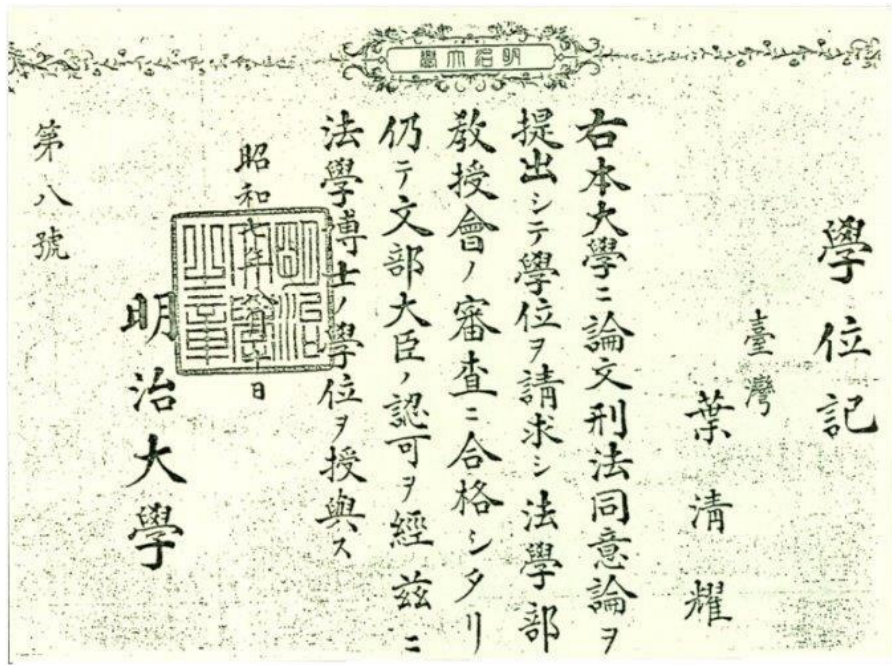 明治大學
學位記
臺灣
葉清耀
右本大學ニ論文刑法同意論ヲ
提出シテ學位ヲ請求シ法學部
教授會ノ審査ニ合格シタリ
仍テ文部大臣ノ認可ヲ經茲ニ
法學博士ノ學位ヲ授與ス
昭和七年月日
明治大學
第八號